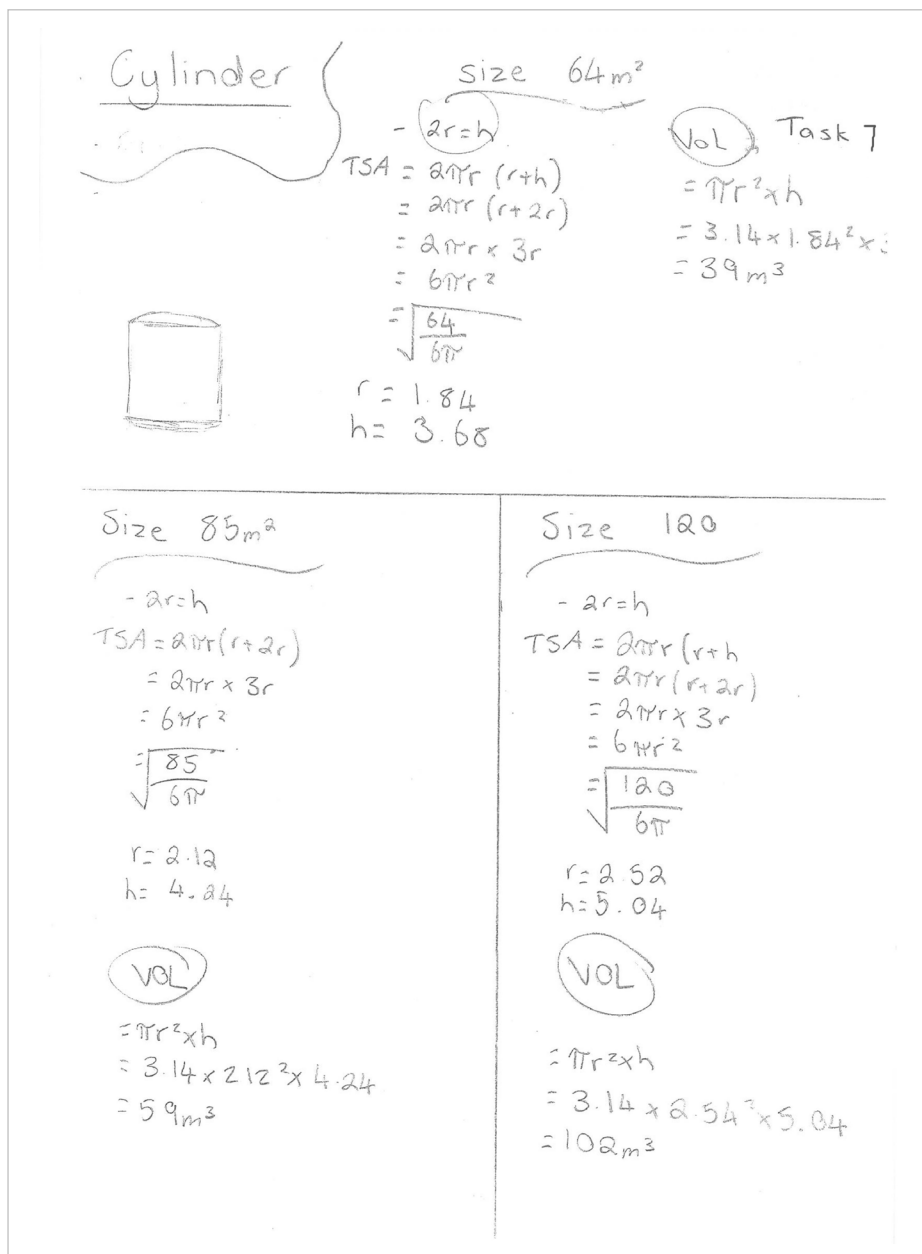 Cylinder
Size 64m²
- 2r=h
TSA = 2πr (r+h)
= 2πr (r+2r)
= 2πr x 3r
= 6πr²
= √(64/6π)
r = 1.84
h = 3.68
VOL Task 7
= πr² x h
= 3.14 x 1.84² x
= 39m³
Size 85m²
- 2r=h
TSA = 2πr(r+2r)
= 2πr x 3r
= 6πr²
= √(85/6π)
r = 2.12
h = 4.24
VOL
= πr² x h
= 3.14 x 212² x 4.24
= 59m³
Size 120
- 2r=h
TSA = 2πr (r+h
= 2πr (r+2r)
= 2πr x 3r
= 6πr²
= √(120/6π)
r = 2.52
h = 5.04
VOL
= πr² x h
= 3.14 x 2.54² x 5.04
= 102m³